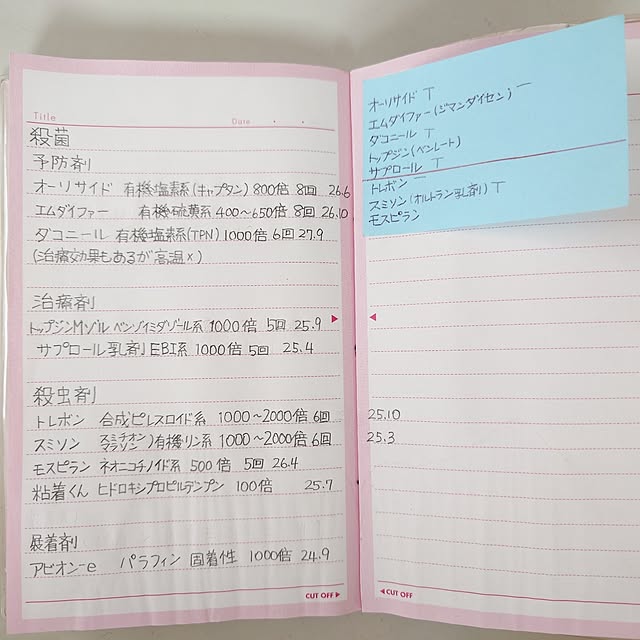 Title
Date
殺菌
予防剤
オーリサイド 有機塩素系(キャプタン) 800倍 8回 26.6
エムダイファー 有機硫黄系 400〜650倍 8回 26.10
ダコニール 有機塩素系(TPN) 1000倍 6回 27.9
(治療効果もあるが高温×)
治療剤
トップジンMゾル ベンゾイミダゾール系 1000倍 5回 25.9
サプロール乳剤 EBI系 1000倍 5回 25.4
殺虫剤
トレボン 合成ピレスロイド系 1000〜2000倍 6回 25.10
スミソン スミチオン マラソン)有機リン系 1000〜2000倍 6回 25.3
モスピラン ネオニコチノイド系 500倍 5回 26.4
粘着くん ヒドロキシプロピルデンプン 100倍 25.7
展着剤
アビオン-e パラフィン 固着性 1000倍 24.9
CUT OFF
オーリサイド T
エムダイファー(ジマンダイセン) 一
ダコニール T
トップジン(ベンレート)
サプロール T
トレボン 一
スミソン(オルトラン乳剤) T
モスピラン
CUT OFF